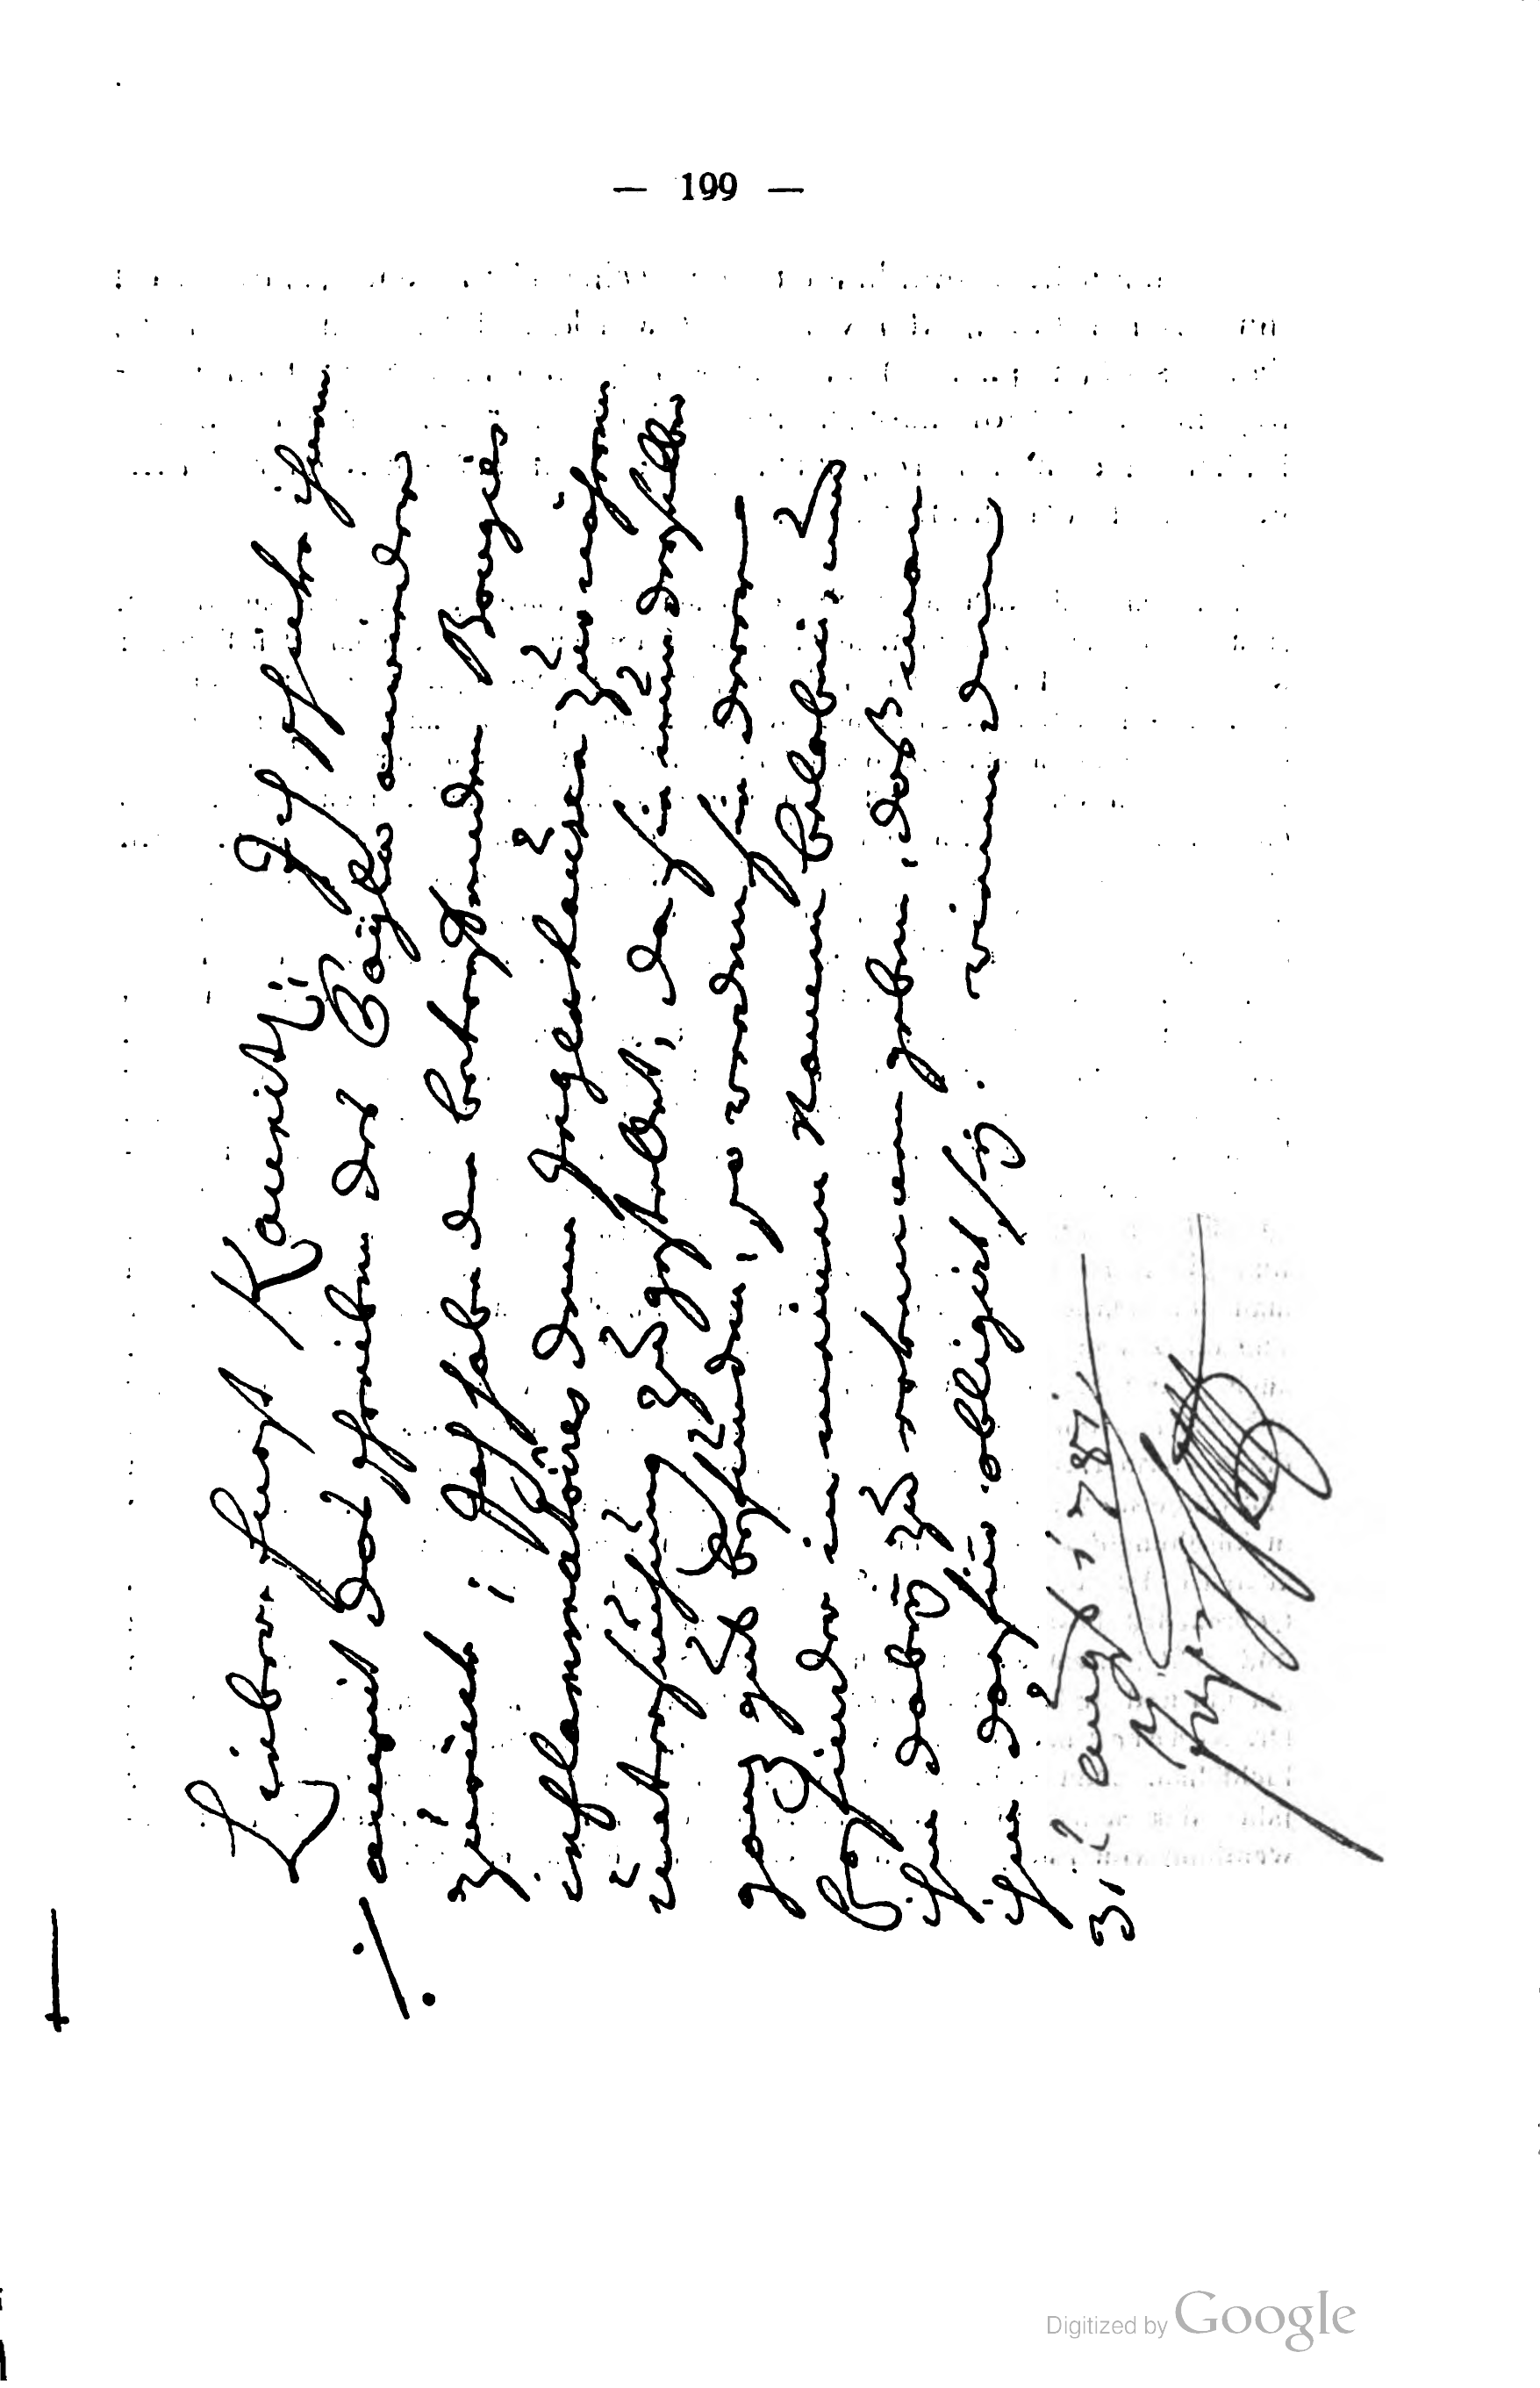 — 199 —
Lieber Fürst Kaunitz! Ich schicke ihnen
anmit das schreiben des Bayler anwieder
zurück; Ich habe die betreffenden Bougies
inflammatoires dem Ingenhousz zur nähern
untersuchung zugestellt, da sie nun dieselbe
ganz gut befunden, so werden sie deren
Erfinder in meinem Namen beloben, und
ihm dabey zu erkennen geben, daß man
ihm dafür obligirt sey.
31 augst 1781
Joseph
Digitized by Google